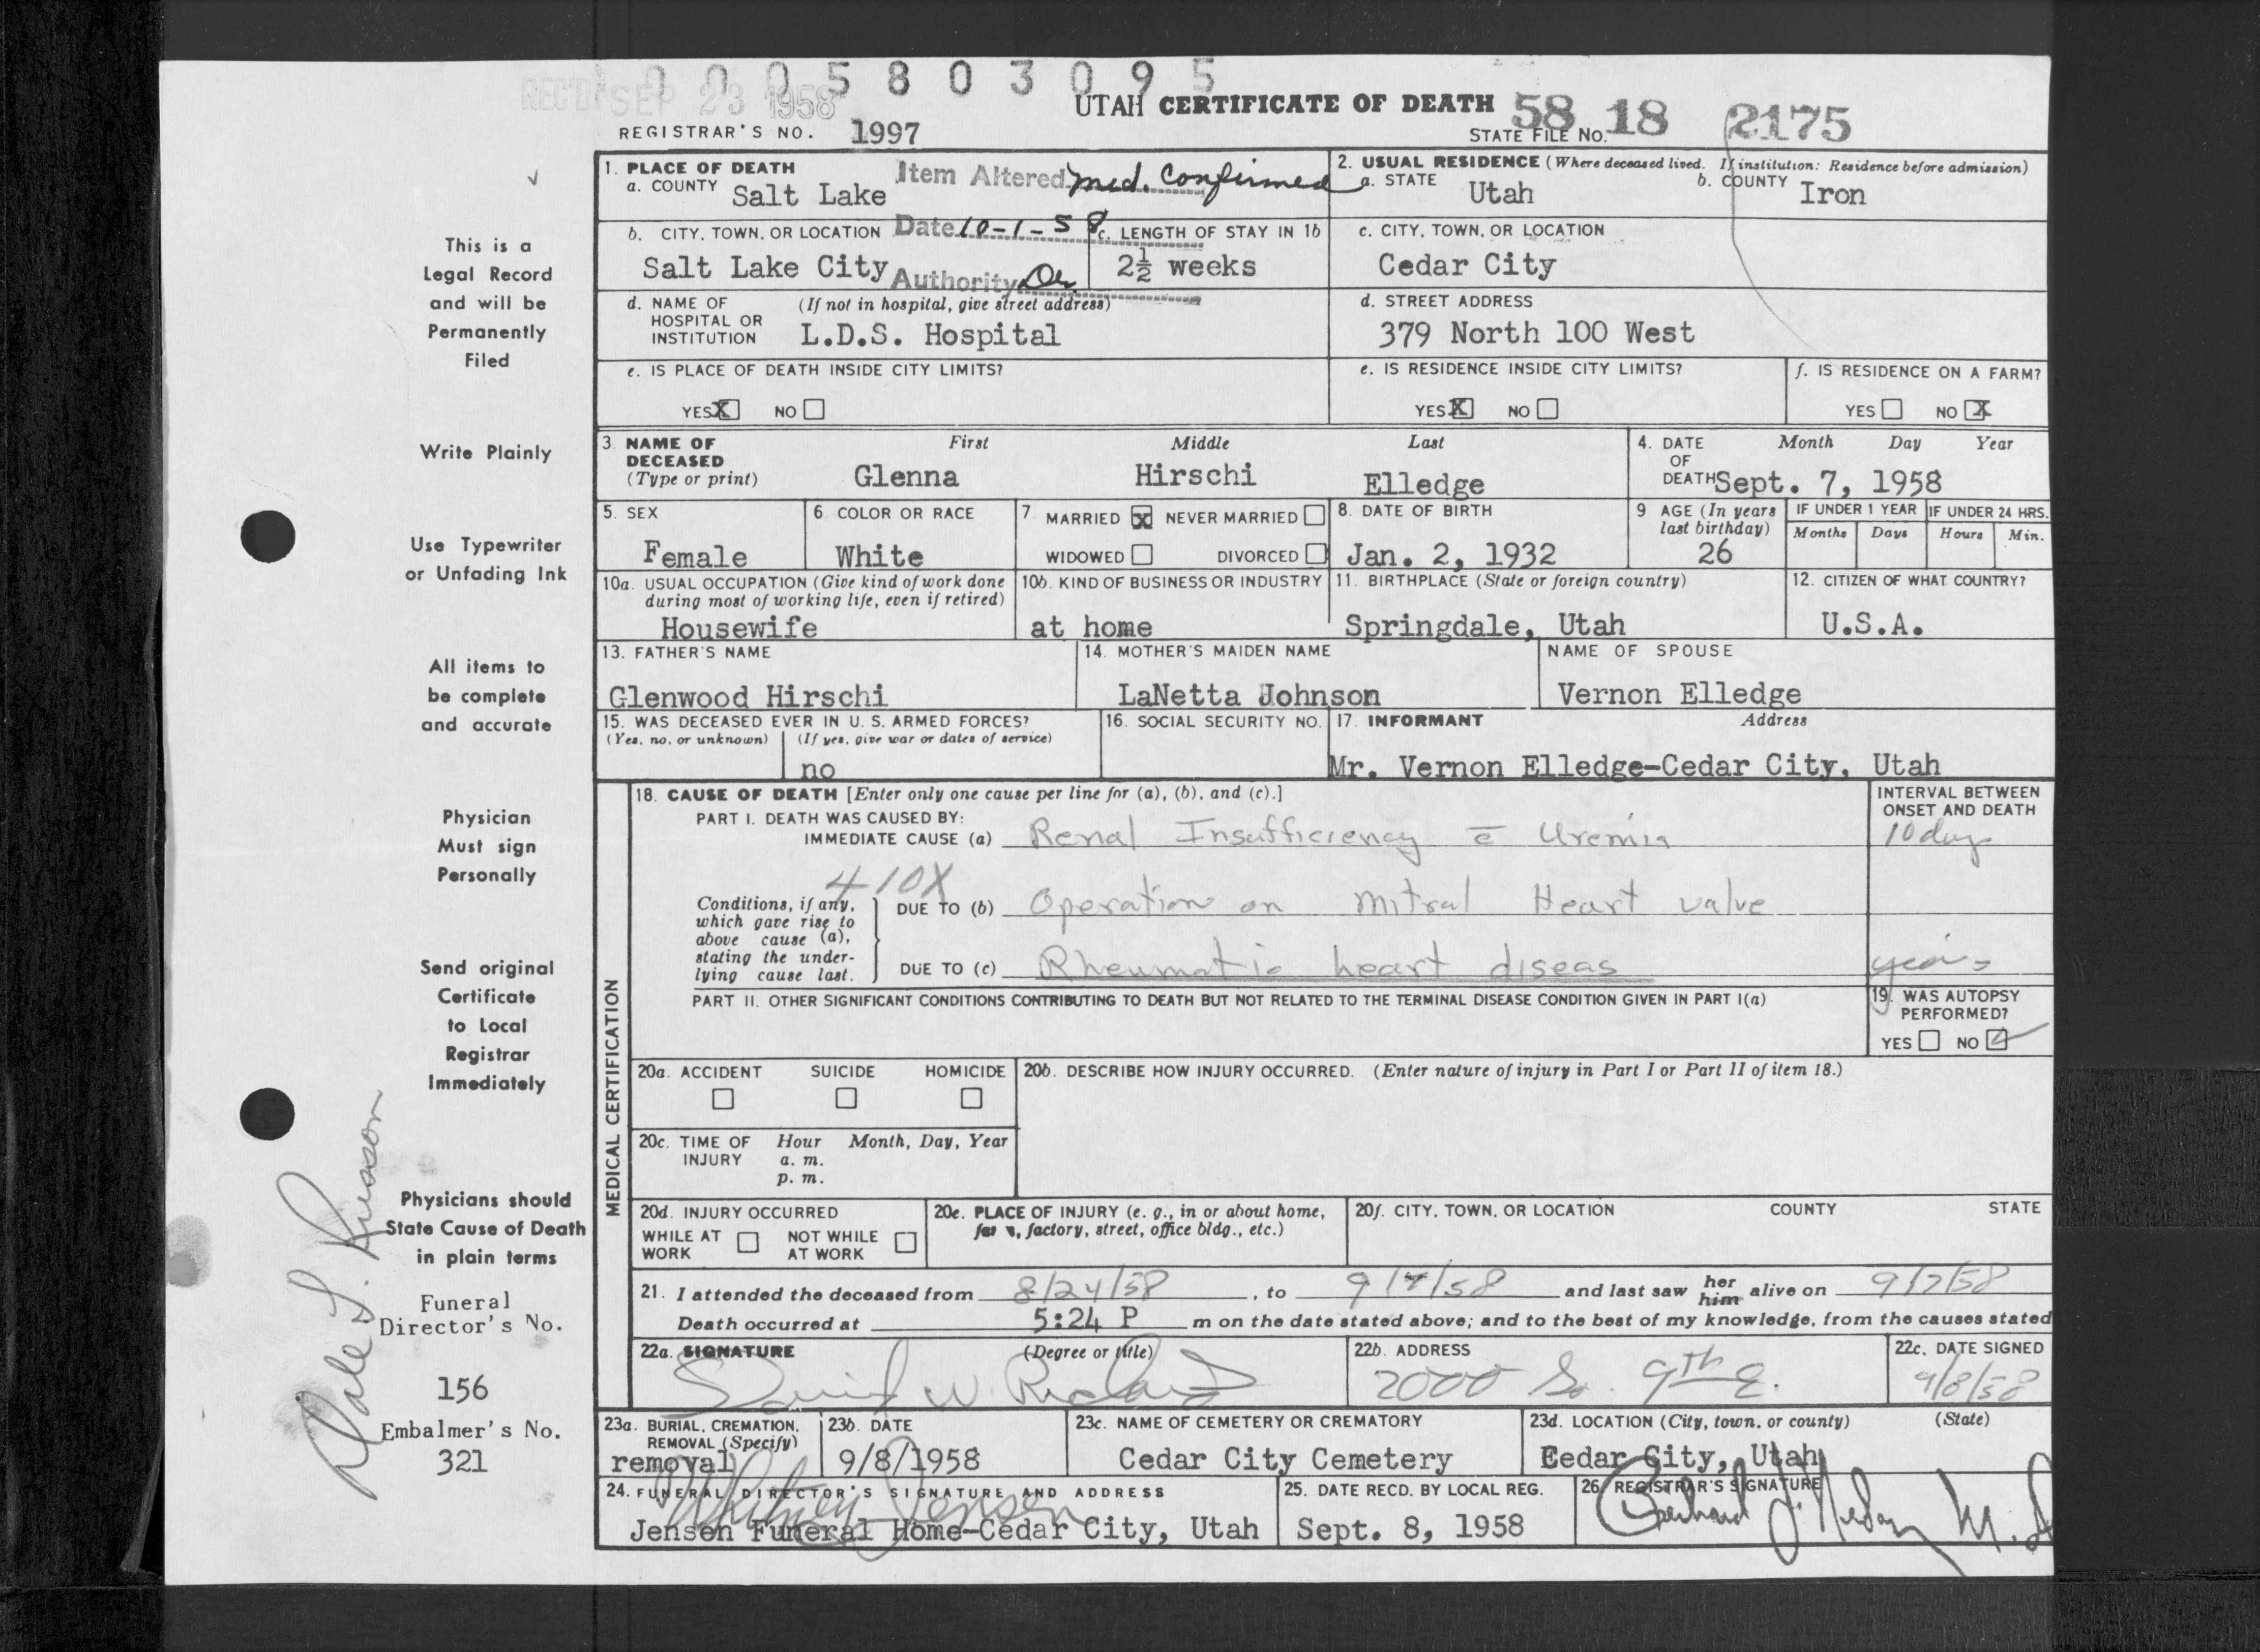 0 0 0 5 8 0 3 0 9 5
REC'D SEP 23 1958
UTAH CERTIFICATE OF DEATH
REGISTRAR'S NO. 1997
STATE FILE NO. 58 18 2175
1. PLACE OF DEATH
a. COUNTY Salt Lake
Item Altered med. confirmed
Date 10-1-58
Authority
b. CITY, TOWN, OR LOCATION
Salt Lake City
c. LENGTH OF STAY IN 1b
2½ weeks
d. NAME OF HOSPITAL OR INSTITUTION (If not in hospital, give street address)
L.D.S. Hospital
e. IS PLACE OF DEATH INSIDE CITY LIMITS?
YES X NO
2. USUAL RESIDENCE (Where deceased lived. If institution: Residence before admission)
a. STATE Utah
b. COUNTY Iron
c. CITY, TOWN, OR LOCATION
Cedar City
d. STREET ADDRESS
379 North 100 West
e. IS RESIDENCE INSIDE CITY LIMITS?
YES X NO
f. IS RESIDENCE ON A FARM?
YES NO X
3. NAME OF DECEASED (Type or print)
First Middle Last
Glenna Hirschi Elledge
4. DATE OF DEATH Month Day Year
Sept. 7, 1958
5. SEX
Female
6. COLOR OR RACE
White
7. MARRIED X NEVER MARRIED
WIDOWED DIVORCED
8. DATE OF BIRTH
Jan. 2, 1932
9 AGE (In years last birthday)
26
IF UNDER 1 YEAR
Months Days
IF UNDER 24 HRS.
Hours Min.
10a. USUAL OCCUPATION (Give kind of work done during most of working life, even if retired)
Housewife
10b. KIND OF BUSINESS OR INDUSTRY
at home
11. BIRTHPLACE (State or foreign country)
Springdale, Utah
12. CITIZEN OF WHAT COUNTRY?
U.S.A.
13. FATHER'S NAME
Glenwood Hirschi
14. MOTHER'S MAIDEN NAME
LaNetta Johnson
NAME OF SPOUSE
Vernon Elledge
15. WAS DECEASED EVER IN U. S. ARMED FORCES?
(Yes, no, or unknown) (If yes, give war or dates of service)
no
16. SOCIAL SECURITY NO.
17. INFORMANT Address
Mr. Vernon Elledge-Cedar City, Utah
MEDICAL CERTIFICATION
18. CAUSE OF DEATH [Enter only one cause per line for (a), (b), and (c).]
INTERVAL BETWEEN ONSET AND DEATH
PART I. DEATH WAS CAUSED BY:
IMMEDIATE CAUSE (a) Renal Insufficiency c̄ Uremia
10 days
410X
Conditions, if any, which gave rise to above cause (a), stating the underlying cause last.
DUE TO (b) Operation on mitral Heart valve
DUE TO (c) Rheumatic heart diseas
years
PART II. OTHER SIGNIFICANT CONDITIONS CONTRIBUTING TO DEATH BUT NOT RELATED TO THE TERMINAL DISEASE CONDITION GIVEN IN PART I(a)
19. WAS AUTOPSY PERFORMED?
YES NO
20a. ACCIDENT SUICIDE HOMICIDE
20b. DESCRIBE HOW INJURY OCCURRED. (Enter nature of injury in Part I or Part II of item 18.)
20c. TIME OF INJURY Hour Month, Day, Year
a. m.
p. m.
20d. INJURY OCCURRED
WHILE AT WORK NOT WHILE AT WORK
20e. PLACE OF INJURY (e. g., in or about home, farm, factory, street, office bldg., etc.)
20f. CITY, TOWN, OR LOCATION COUNTY STATE
21. I attended the deceased from 8/24/58, to 9/7/58 and last saw her him alive on 9/7/58
Death occurred at 5:24 P m on the date stated above; and to the best of my knowledge, from the causes stated
22a. SIGNATURE (Degree or title)
David W. Richards
22b. ADDRESS
2000 So. 9th E.
22c. DATE SIGNED
9/8/58
23a. BURIAL, CREMATION, REMOVAL (Specify)
removal
23b. DATE
9/8/1958
23c. NAME OF CEMETERY OR CREMATORY
Cedar City Cemetery
23d. LOCATION (City, town, or county) (State)
Cedar City, Utah
24. FUNERAL DIRECTOR'S SIGNATURE AND ADDRESS
Whitney Jensen
Jensen Funeral Home-Cedar City, Utah
25. DATE RECD. BY LOCAL REG.
Sept. 8, 1958
26. REGISTRAR'S SIGNATURE
This is a
Legal Record
and will be
Permanently
Filed
Write Plainly
Use Typewriter
or Unfading Ink
All items to
be complete
and accurate
Physician
Must sign
Personally
Send original
Certificate
to Local
Registrar
Immediately
Physicians should
State Cause of Death
in plain terms
Funeral
Director's No.
156
Embalmer's No.
321
Dale S. Russon